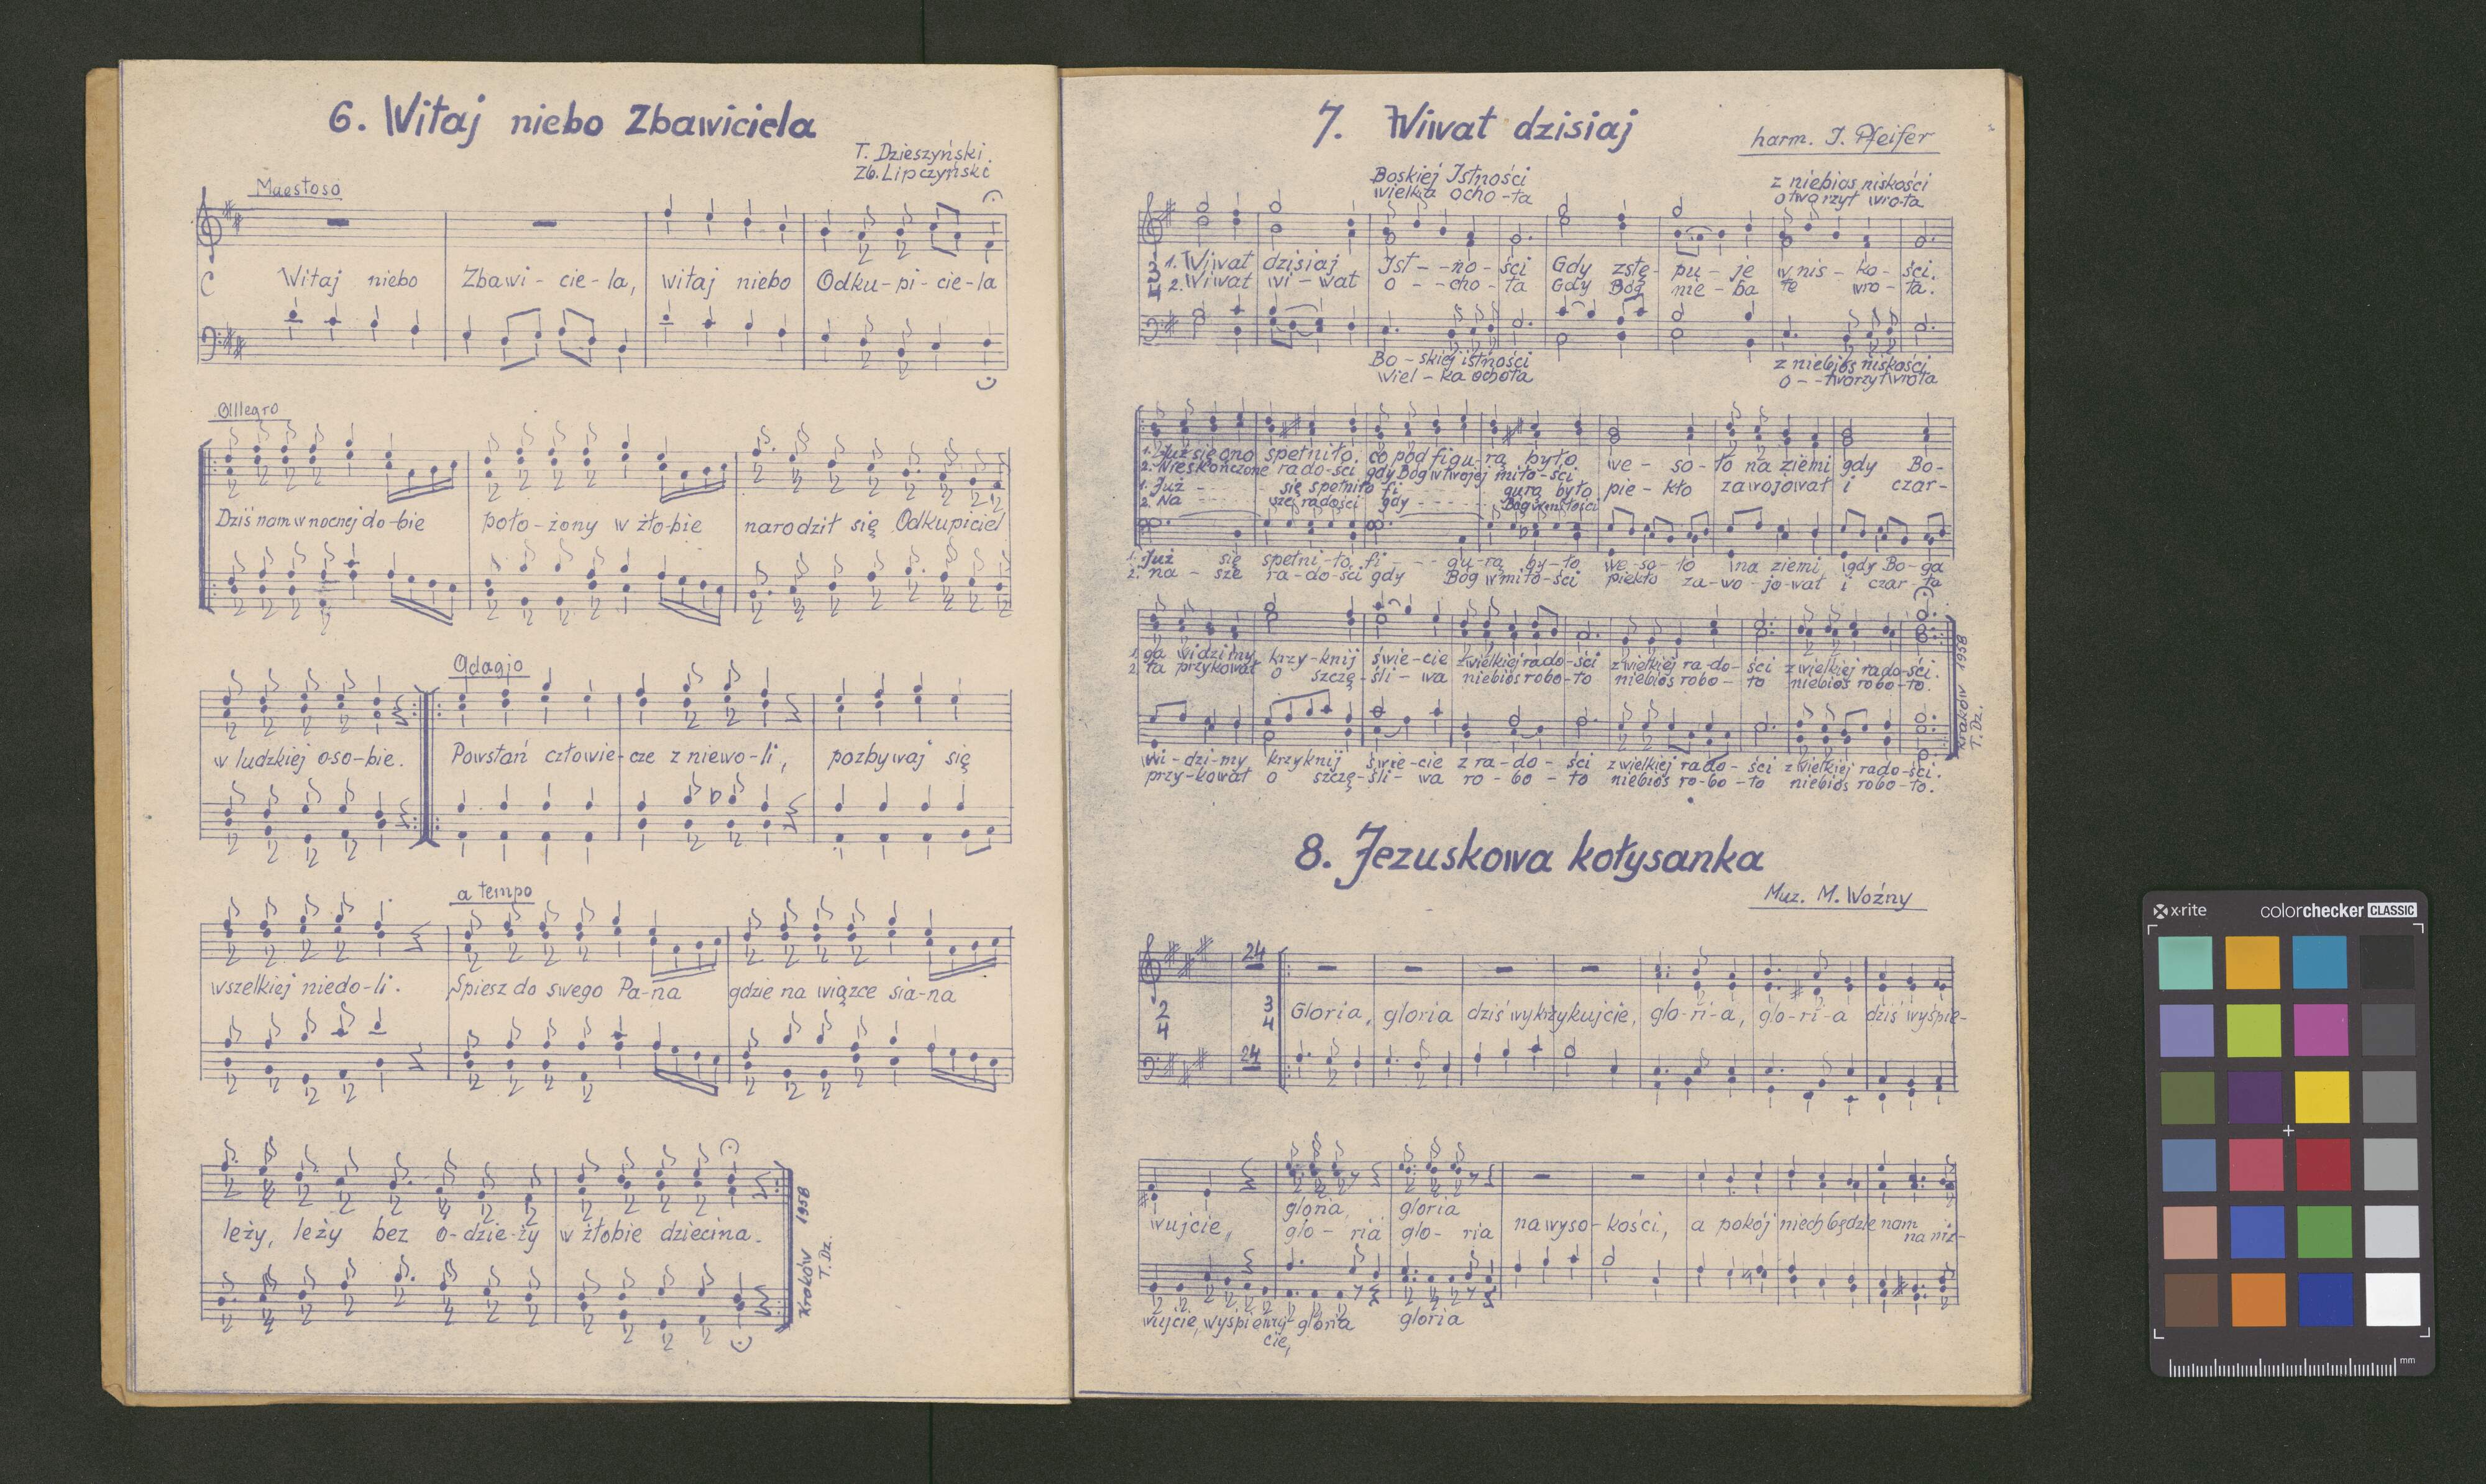 6. Witaj niebo Zbawiciela
T. Dzieszyński.
Zb. Lipczyński
Maestoso
C
Witaj niebo Zbawi - cie - la, witaj niebo Odku - pi - cie - la
Allegro
Dziś nam w nocnej do - bie poło - żony w żło - bie narodził się Odkupiciel
Adagio
w ludzkiej o-so-bie. Powstań człowie - cze z niewo - li, pozbywaj się
a tempo
wszelkiej niedo - li. Spiesz do swego Pa - na gdzie na wiązce sia - na
leży, leży bez o - dzie - ży w żłobie dziecina.
Kraków 1958
T. Dz.
7. Wiwat dzisiaj
harm. J. Pfeifer
Boskiej Istności z niebios niskości
wielka ocho - ta otworzył wro-ta
3
4
1. Wiwat dzisiaj Ist - - no - ści Gdy zstę - pu - je w nis - ko - ści.
2. Wiwat wi - wat o - - cho - ta Gdy Bóg nie - ba te wro - ta.
Bo - skiej istności z niebios niskości
wiel - ka ochota o - - tworzył wrota
1. Już się ono spełniło, co pod figu - rą było. we - so - ło na ziemi gdy Bo -
2. Nieskończone rado - ści gdy Bóg w twojej miło - ści.
1. Już - się spełniło fi - - - gurą było pie - kło zawojował i czar -
2. Na - - - - sze radości gdy - - - - - - Bóg w miłości
1. Już się spełni - ło fi - - - gu - rą by - ło we - so - ło na ziemi gdy Bo - ga
2. na - sze ra - do - ści gdy Bóg w miło - ści piekło za - wo - jo - wał i czar - ta
1. ga widzimy krzy - knij świe - cie z wielkiej rado - ści z wielkiej ra - do - ści z wielkiej rado - ści.
2. ta przykował o szczę - śli - wa niebios robo - to niebios robo - to niebios robo - to.
wi - dzi - my krzyknij świe - cie z ra - do - ści z wielkiej rado - ści z wielkiej rado - ści.
przy - kował o szczę - śli - wa ro - bo - to niebios ro - bo - to niebios robo - to.
Kraków 1958
T. Dz.
8. Jezuskowa kołysanka
Muz. M. Woźny
24
2
4
3
4
Gloria, gloria dziś wykrzykujcie, glo - ri - a, glo - ri - a dziś wyśpie -
24
gloria, gloria
wujcie, glo - ria glo - ria na wyso - kości, a pokój niech będzie nam
na niz -
wujcie, wyśpiewuj gloria gloria
cie,
x-rite
colorchecker CLASSIC
mm